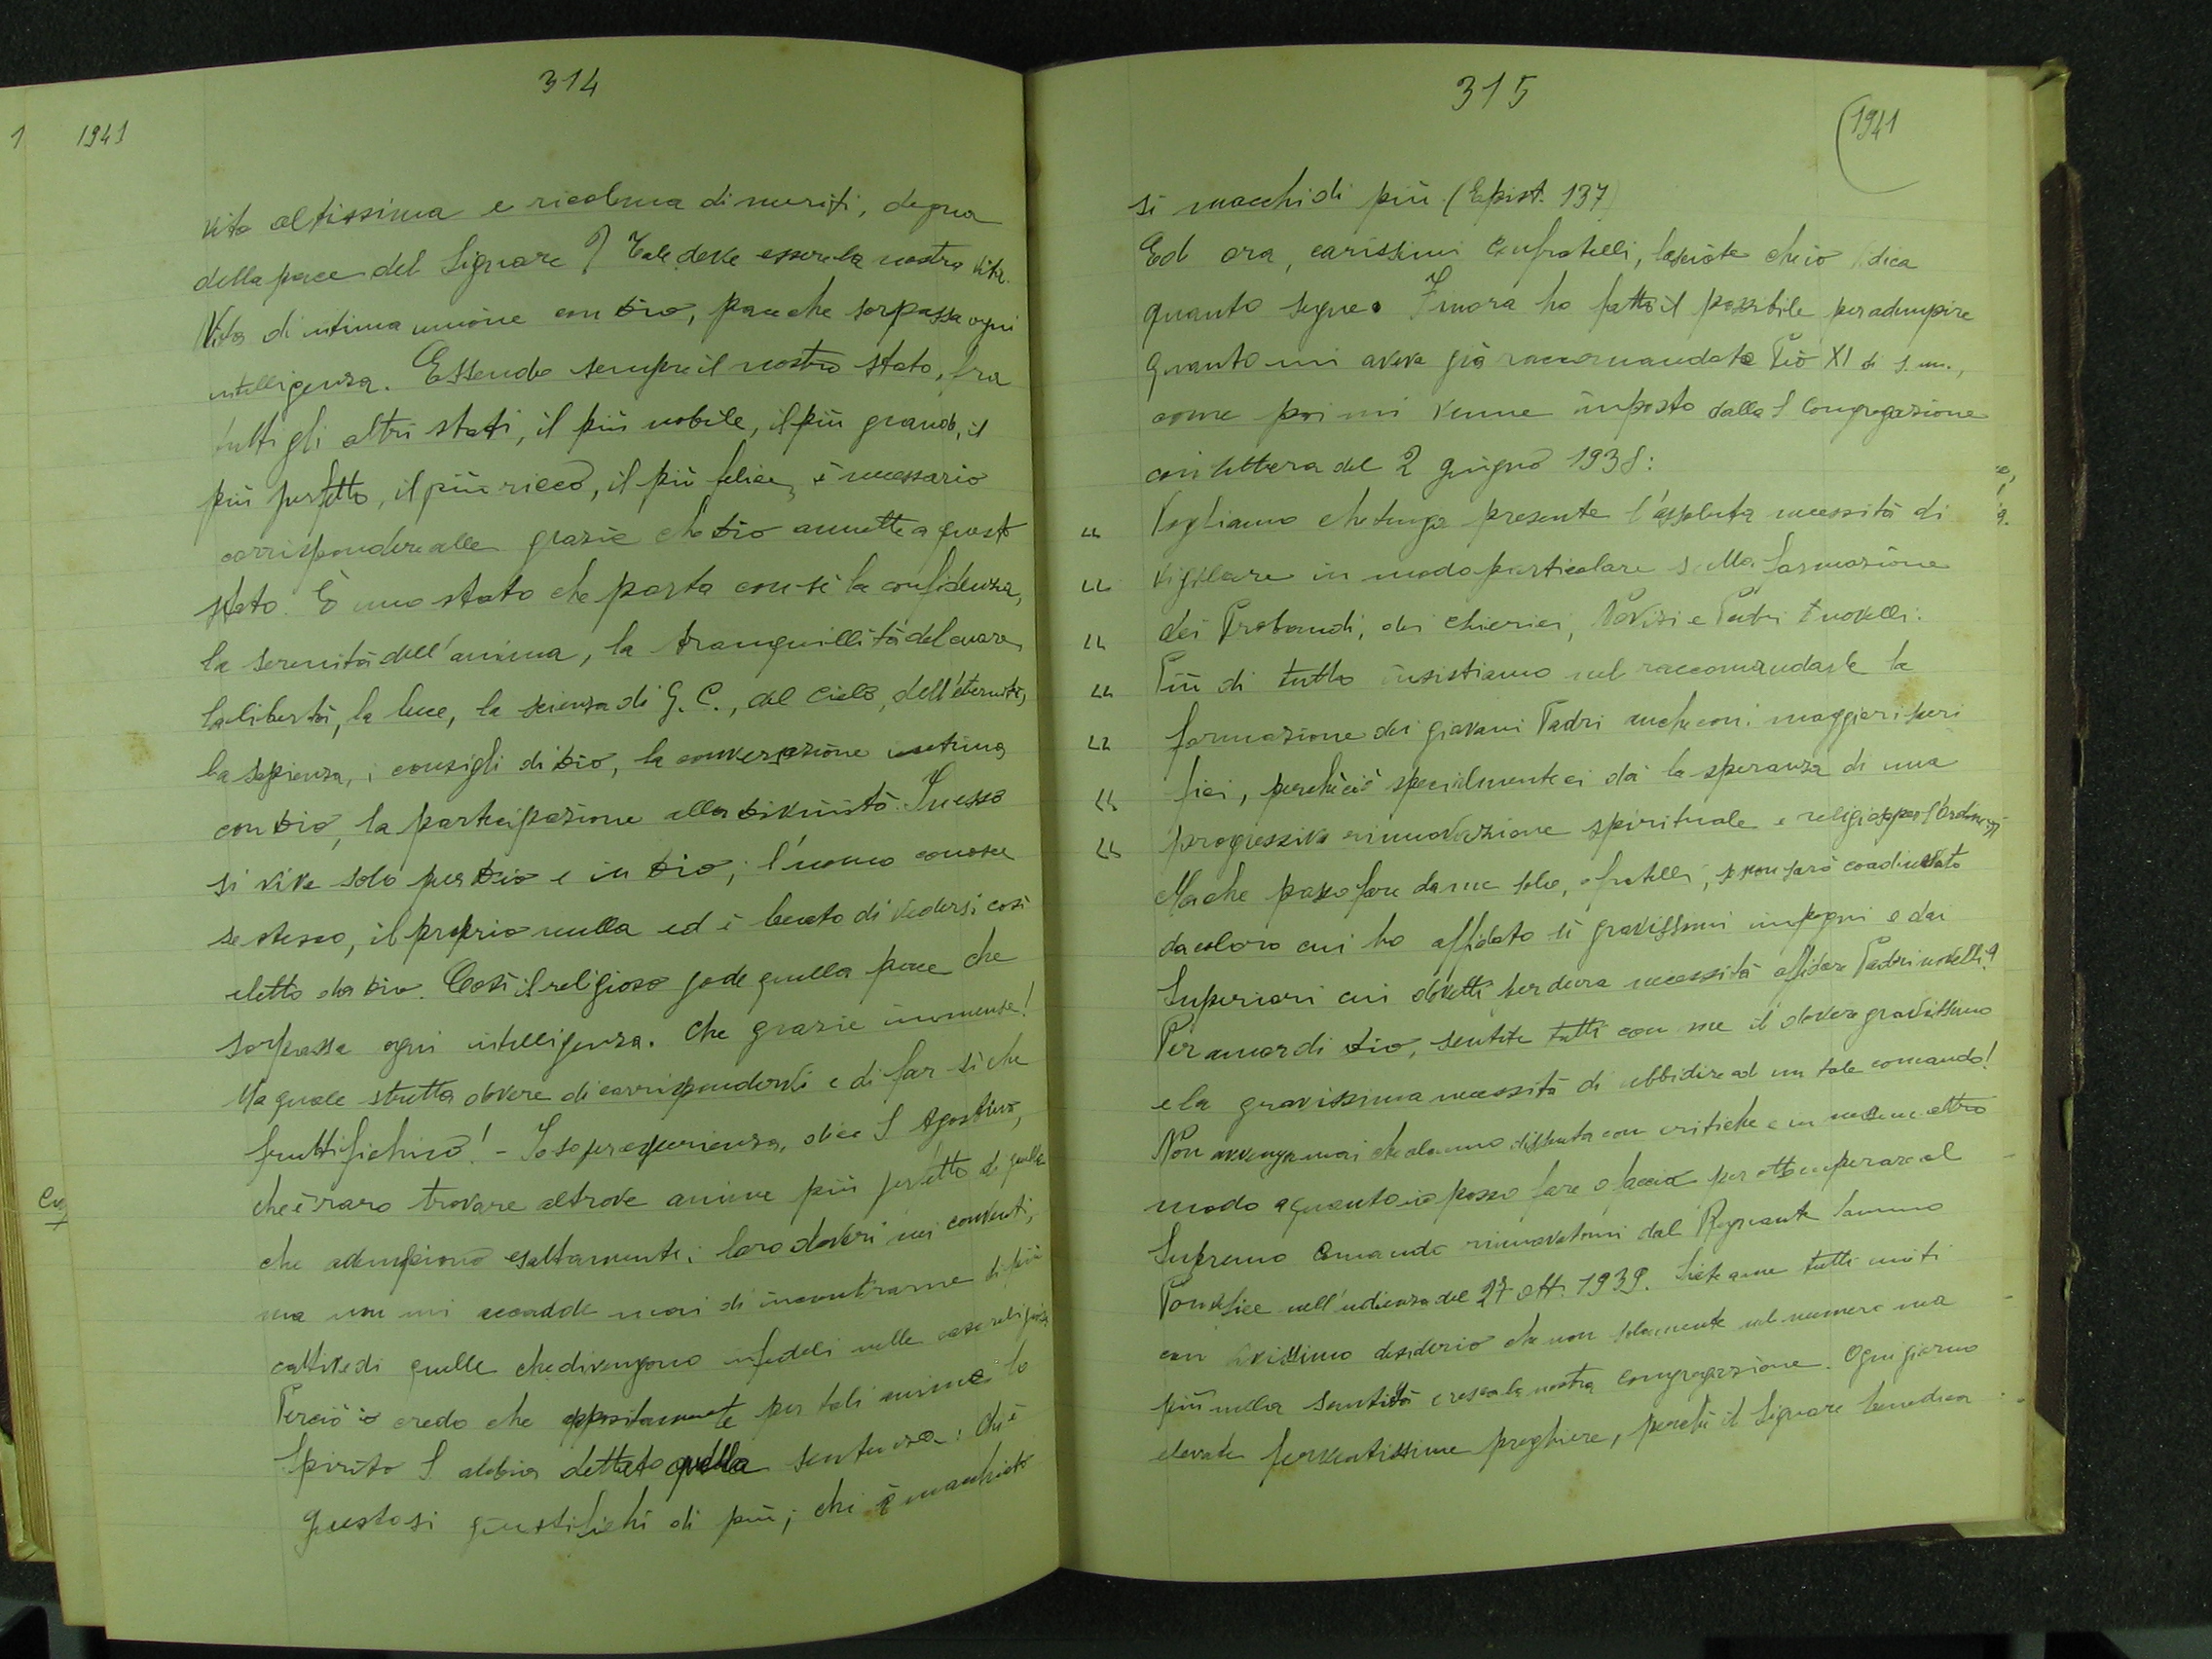 314
1941
vita altissima e ricolma di meriti, degna
della pace del Signore? Tale deve essere la nostra vita.
Vita di intima unione con Dio, pace che sorpassa ogni
intelligenza. Essendo sempre il nostro stato, fra
tutti gli altri stati, il più nobile, il più grande, il
più perfetto, il più ricco, il più felice, è necessario
corrispondere alle grazie che Dio annette a questo
stato. È uno stato che porta con sè la confidenza,
la serenità dell'anima, la tranquillità del cuore,
la libertà, la luce, la scienza di G. C., del Cielo, dell'eternità,
la sapienza, i consigli di Dio, la conversazione intima
con Dio, la partecipazione alla Divinità. In esso
si vive solo per Dio e in Dio; l'uomo conosce
se stesso, il proprio nulla ed è beato di vedersi così
eletto da Dio. Così il religioso gode quella pace che
sorpassa ogni intelligenza. Che grazie immense!
Ma quale stretto dovere di corrispondervi e di far sì che
fruttifichino! - Io so per esperienza, dice S Agostino,
che è raro trovare altrove anime più perfette di quelle
che adempiono esattamente i loro doveri nei conventi,
ma non mi accadde mai di incontrarne di più
cattive di quelle che divengono infedeli nelle case religiose
Perciò io credo che appositamente per tali anime lo
Spirito S abbia dettato quella sentenza: Chi è
giusto si giustifichi di più; chi è macchiato
315
1941
si macchi di più (Epist. 137)
Ed ora, carissimi Confratelli, lasciate ch'io dica
quanto segue. Finora ho fatto il possibile per adempire
quanto mi aveva già raccomandato Pio XI di s. m.,
come poi mi venne imposto dalla S Congregazione
con lettera del 2 giugno 1938:
" Vogliamo che tenga presente l'assoluta necessità di
" vigilare in modo particolare sulla formazione
" dei Probandi, dei Chierici, Novizi e Padri novelli:
" Più di tutto insistiamo nel raccomandarle la
" formazione dei giovani Padri anche con i maggiori sacri
" fici, perchè ciò specialmente ci dà la speranza di una
" progressiva rinnovazione spirituale e religiosa per l'Ordine
Ma che posso fare da me solo, o fratelli, se non sarò coadiuvato
da coloro cui ho affidato sì gravissimi impegni e dai
Superiori cui dovetti per dura necessità affidare Padri novelli?
Per amor di Dio, sentite tutti con me il dovere gravissimo
e la gravissima necessità di ubbidire ad un tale comando!
Non avvenga mai che alcuno dissenta con critiche e in nessun altro
modo a quanto io posso fare o faccio per ottemperare al
Supremo Comando rinnovatomi dal Regnante Sommo
Pontefice nell'udienza del 27 ott. 1939. Siete a me tutti uniti
con vivissimo desiderio che non solamente nel numero ma
più nella santità cresca la nostra Congregazione. Ogni giorno
elevate ferventissime preghiere, perchè il Signore benedica